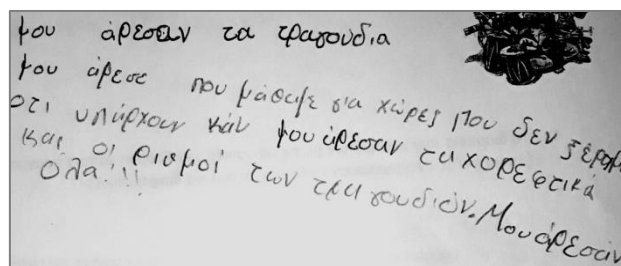 μου άρεσαν τα τραγούδια
μου άρεσε που μάθαμε για χώρες που δεν ξέραμε
οτι υπάρχουν κάν μου άρεσαν τα χορεφτικά
και οι ριθμοί των τραγουδιών. Μου άρεσαν
Όλα!!!